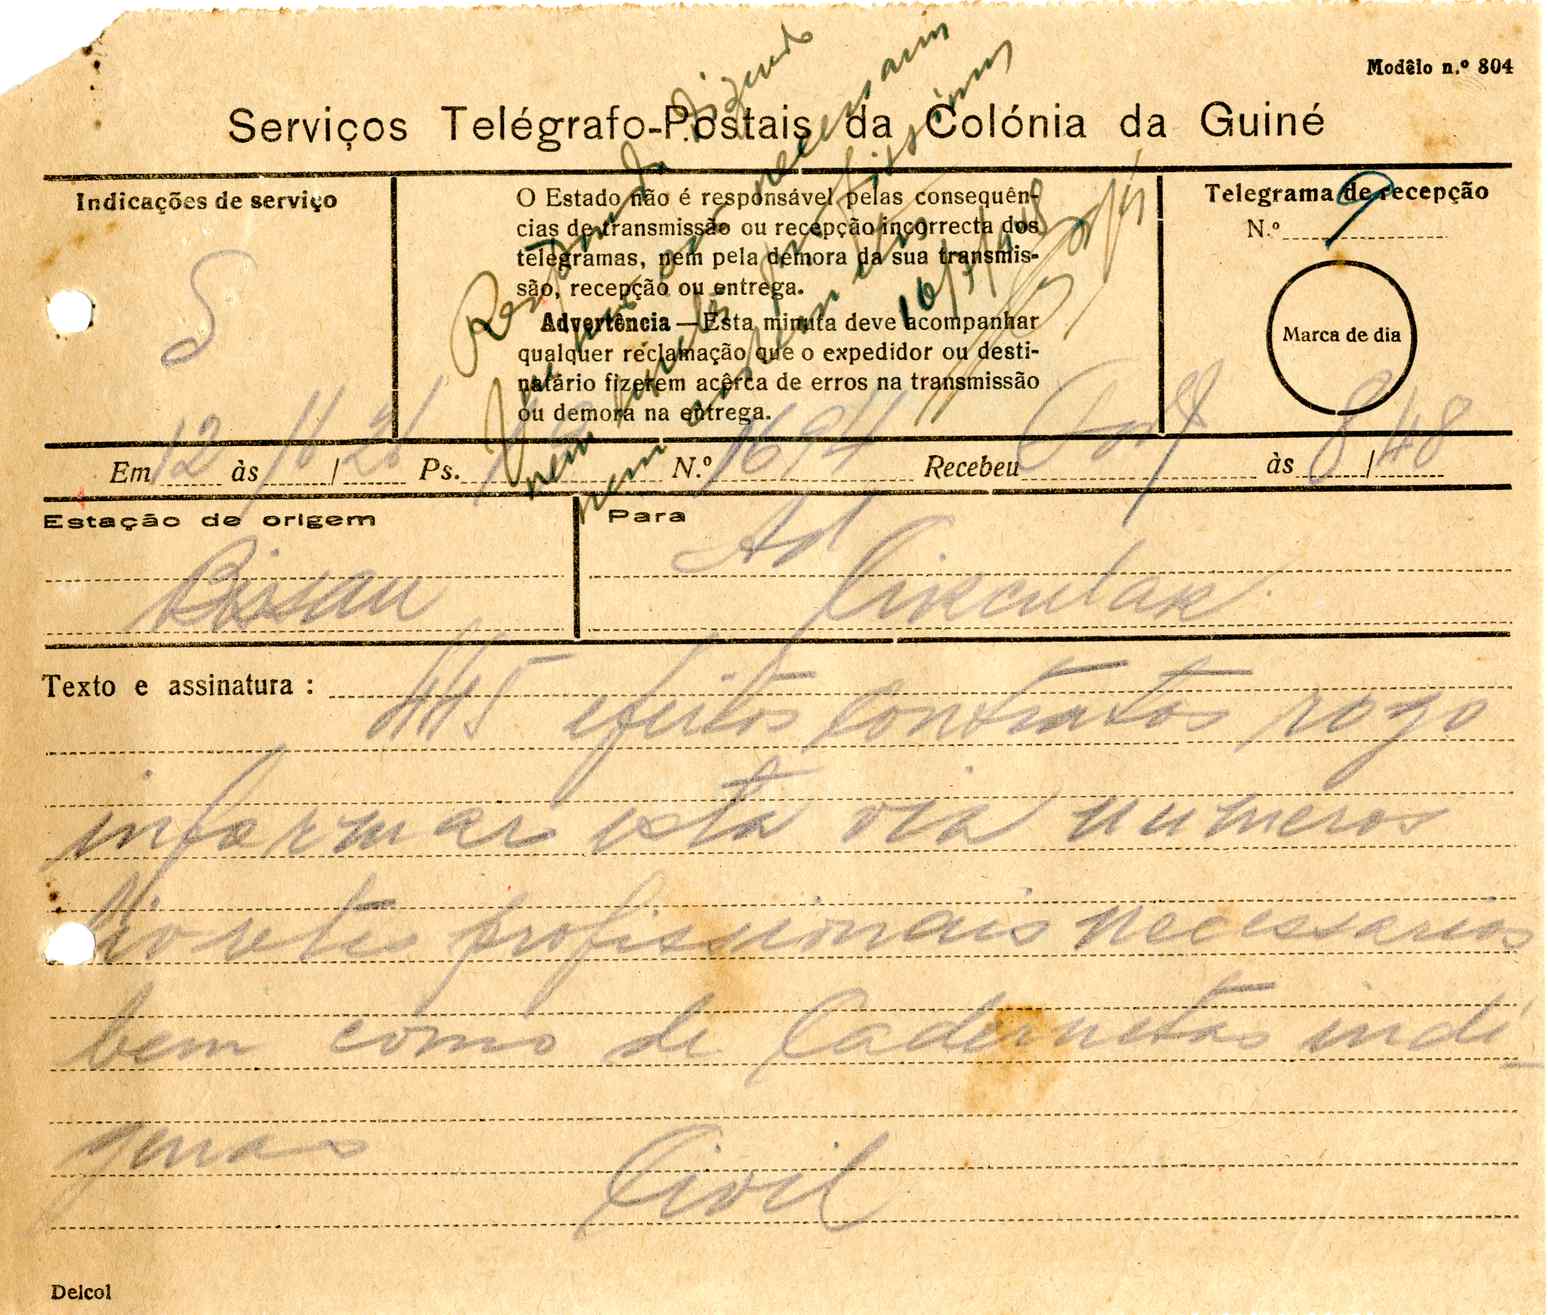 Modêlo n.º 804
Serviços Telégrafo-Postais da Colónia da Guiné
Indicações de serviço
S
O Estado não é responsável pelas consequên-
cias de transmissão ou recepção incorrecta dos
telegramas, nem pela demora da sua transmis-
são, recepção ou entrega.
Advertência — Esta minuta deve acompanhar
qualquer reclamação que o expedidor ou desti-
natário fizerem acêrca de erros na transmissão
ou demora na entrega.
Telegrama de recepção
N.º 9
Marca de dia
Respondido dizendo
que não são necessarios
nem
nem
16/3/948
Em 12 às 16/21 Ps. 19 N.º 1694 Recebeu às 8/48
Estação de origem
Bissau
Para
Ad
Circular
Texto e assinatura :
445 efeitos contratos rogo
informar esta via numeros
livretes profissionais necessarios
bem como de Cadernetas indi-
genas
Civil
Delcol